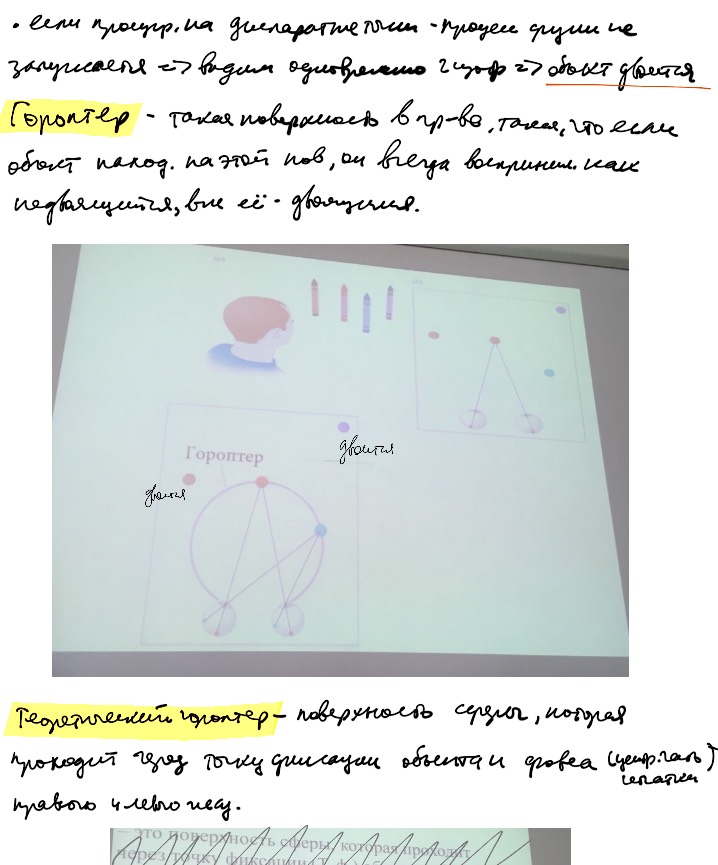 • если проецир. на диспаратные точки - процесс фузии не
запускается => видим одновременно 2 изобр => объект двоится
Гороптер - такая поверхность в пр-ве, такая, что если
объект наход. на этой пов, он всегда восприним. как
недвоящийся, вне её - двоящимся.
двоится
Гороптер
двоится
Теоретический гороптер - поверхность сферы, которая
проходит через точку фиксации объекта и фовеа (центр. часть
сетчатки)
правого и левого
– это поверхность сферы, которая проходит
через точку фиксации